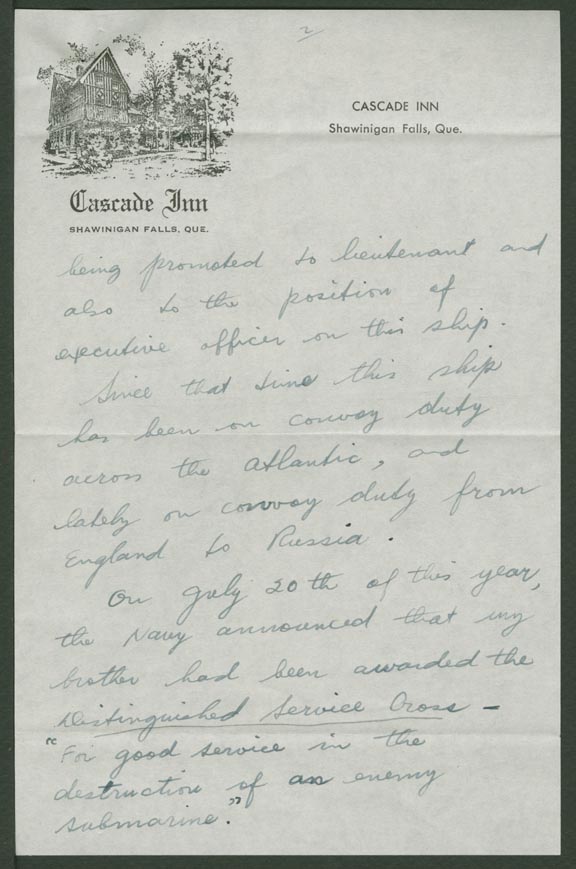 2
CASCADE INN
Shawinigan Falls, Que.
Cascade Inn
SHAWINIGAN FALLS, QUE.
being promoted to lieutenant and
also to the position of
executive officer on this ship.
Since that time this ship
has been on convoy duty
across the Atlantic, and
lately on convoy duty from
England to Russia.
On July 20th of this year,
the Navy announced that my
brother had been awarded the
Distinguished Service Cross -
"For good service in the
destruction of an enemy
submarine."